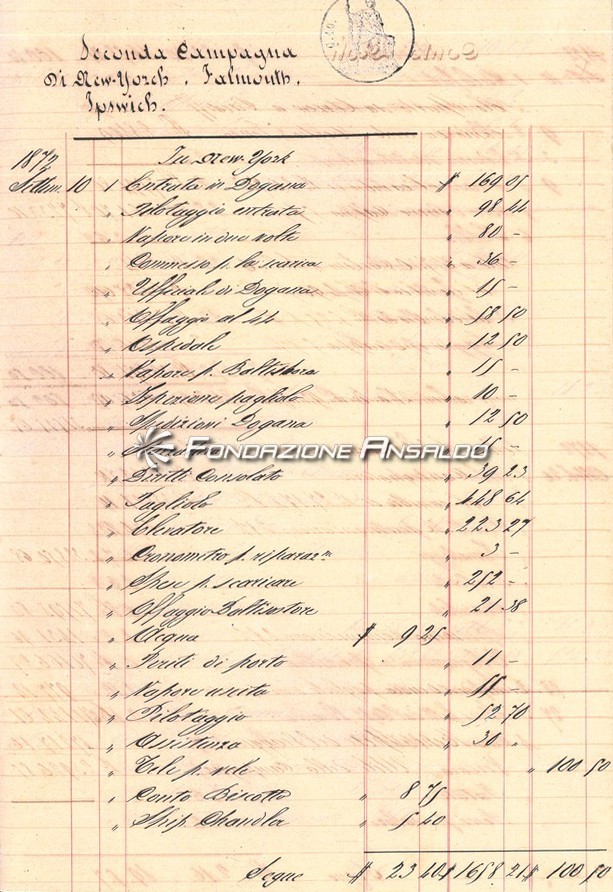 Seconda Campagna
Di New-Yorch, Falmouth,
Ipswich.
1872 In New-York
Settem. 10 1 Entrata in Dogana $ 169 05
" Pilotaggio entrata " 98 44
" Vapore in due volte " 80 -
" Commesso p. la scarica " 36 -
" Ufficiali di Dogana " 15 -
" Offaggio al 44 " 58 50
" Ospedale " 12 50
" Vapore p. " 15 -
" Ispezione pagliolo " 10 -
" Spedizioni Dogana " 12 50
Fondazione Ansaldo
" 15 -
" Diritti Consolato " 39 23
" Pagliolo " 448 64
" Elevatore " 223 27
" Cronometro p. riparaz.n " 3 -
" Spese p. scaricare " 252 -
" Offaggio " 21 38
" Acqua $ 9 25
" Periti di porto " 11 -
" Vapore uscita " 55 -
" Pilotaggio " 52 70
" Assistenza " 30 "
" Tele p. vele " 100 50
" Conto Biscotto " 8 75
" Ship. " 5 40
Segue $ 23 40 $ 1658 21 $ 100 50